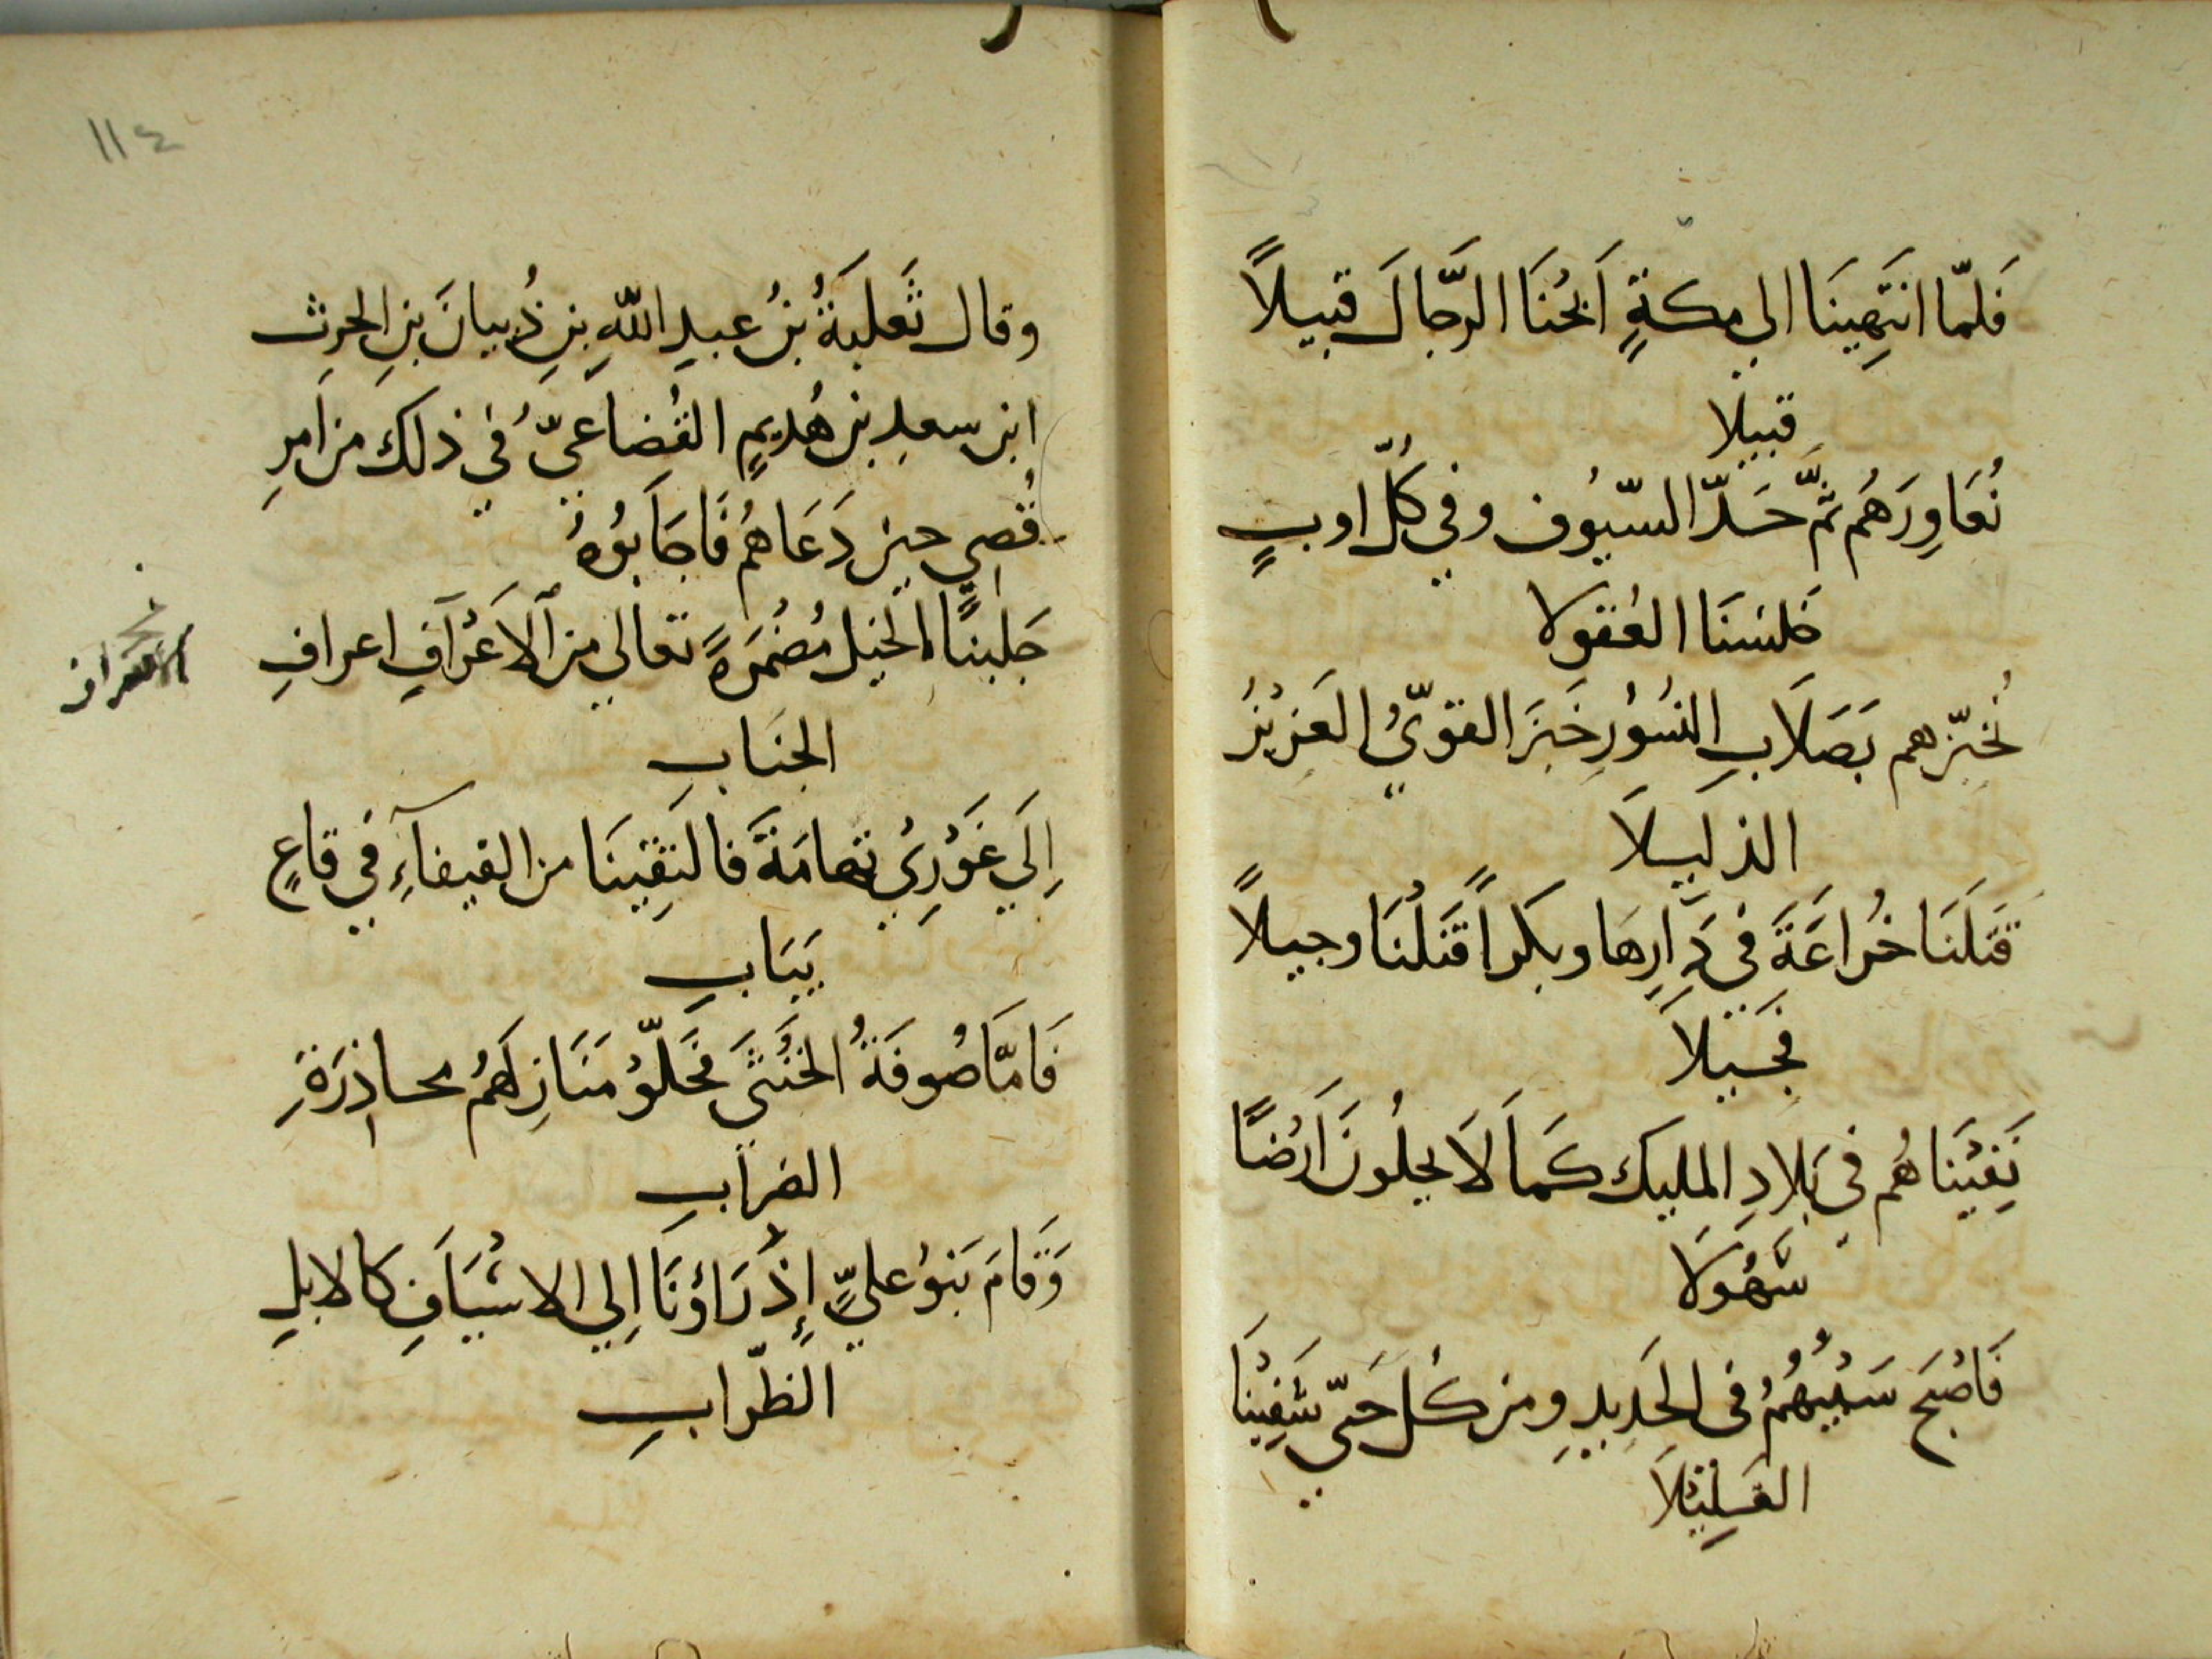 فَلمّا انتَهِينَا الي مكةٍ اَبحُنَا الرّجالَ قبيلاً
قبيلا
نُعَاوِرَهُم ثمَّ حَدّ السّيُوف وفي كُلّ اوبٍ
خلسنَا العُقولا
نُخبّزهم بَصَلَابِ النسُوْرِ خَبزَ القويّ العَزيزُ
الذلِيلَا
قتَلنَا خُراعَةَ في دَارِهَا وبكراً قتَلْنَا وجيلاً
فجَيلاً
نَفِيْنَاهُم في بَلادِ المليك كمَا لَا يحلُون اَرْضًا
سَهُولَا
فَاصْبَح سَبْيُهُمُ في الحَدِيدِ ومن كُل حَيّ شَفِيْنَا
الغَلِيْلَا
١١٤
وقال ثَعلبَةُ بنُ عبدِ اللّهِ بنِ ذُبيانَ بنِ الحرث
ابن سعدِ بن هُديمٍ القُضاعيّ في ذلك من اَمرِ
قُصي حين دَعَاهُم فَاجَابُوْهُ
جَلبنَا الخيل مُضْمَرَةً تعالي من الاَعْرَافِ اعرافِ
الجنَابِ
اِلَي غَوْرِي تهامَةَ فالتَقِيْنَا من الفيفاَءِ في قاعٍ
يَبَابِ
فَامَّا صُوفَةُ الخُنْثَى فخَلّوْ مَنَازِلَهُم محاذِرَةِ
الضرَابِ
وَقَامَ بَنوْ عليٍّ إِذْ رَاؤنَا اِلي الاسْيَافِ كالابلِ
الظّرابِ